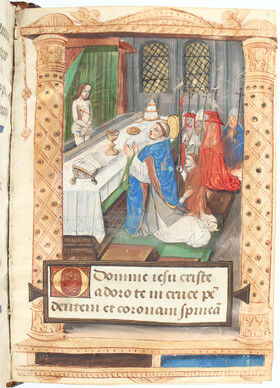 O Domine iesu criste
adoro te in cruce pē
dentem et coronam spineā